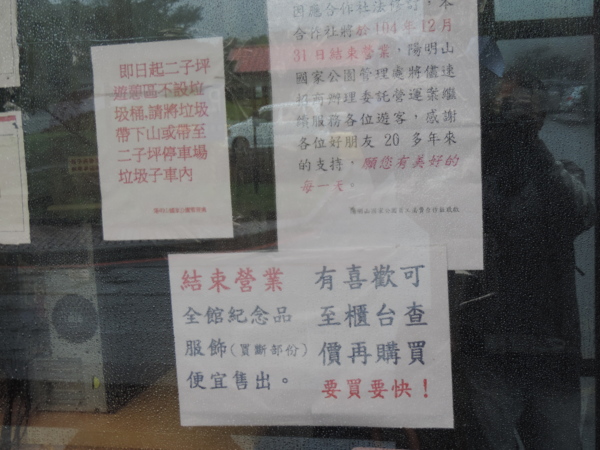 即日起二子坪
遊憩區不設垃
圾桶,請將垃圾
帶下山或帶至
二子坪停車場
垃圾子車內
因應合作社法修可,本
合作社將於104年12月
31日結束營業,陽明山
國家公園管理處將儘速
招商辦理委託營運業繼
續服務各位遊客,感謝
各位好朋友20多年來
的支持,願您有美好的
每一天。
結束營業
全館紀念品
服飾(買斷部份)
便宜售出。
有喜歡可
至櫃台查
價再購買
要買要快!